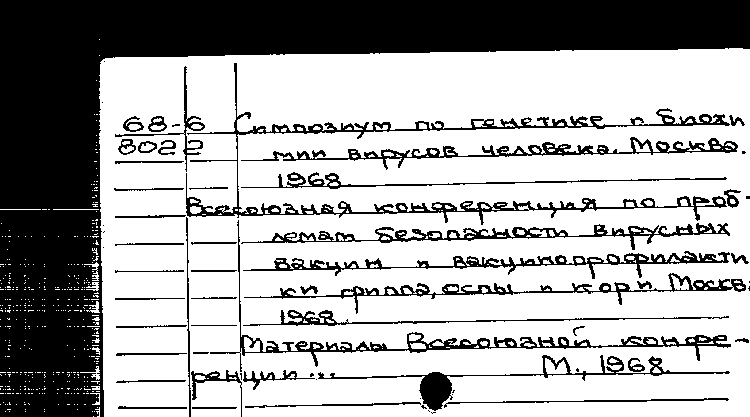 68-6 Симпозиум по генетике и биохи
8022 мии вирусов человека. Москва.
1968.
Всесоюзная конференция по проб-
лемам безопасности вирусных
вакцин и вакцинопрофилакти
ки гриппа, оспы и кори. Москва.
1968.
Материалы Всесоюзной конфе-
ренции... М., 1968.